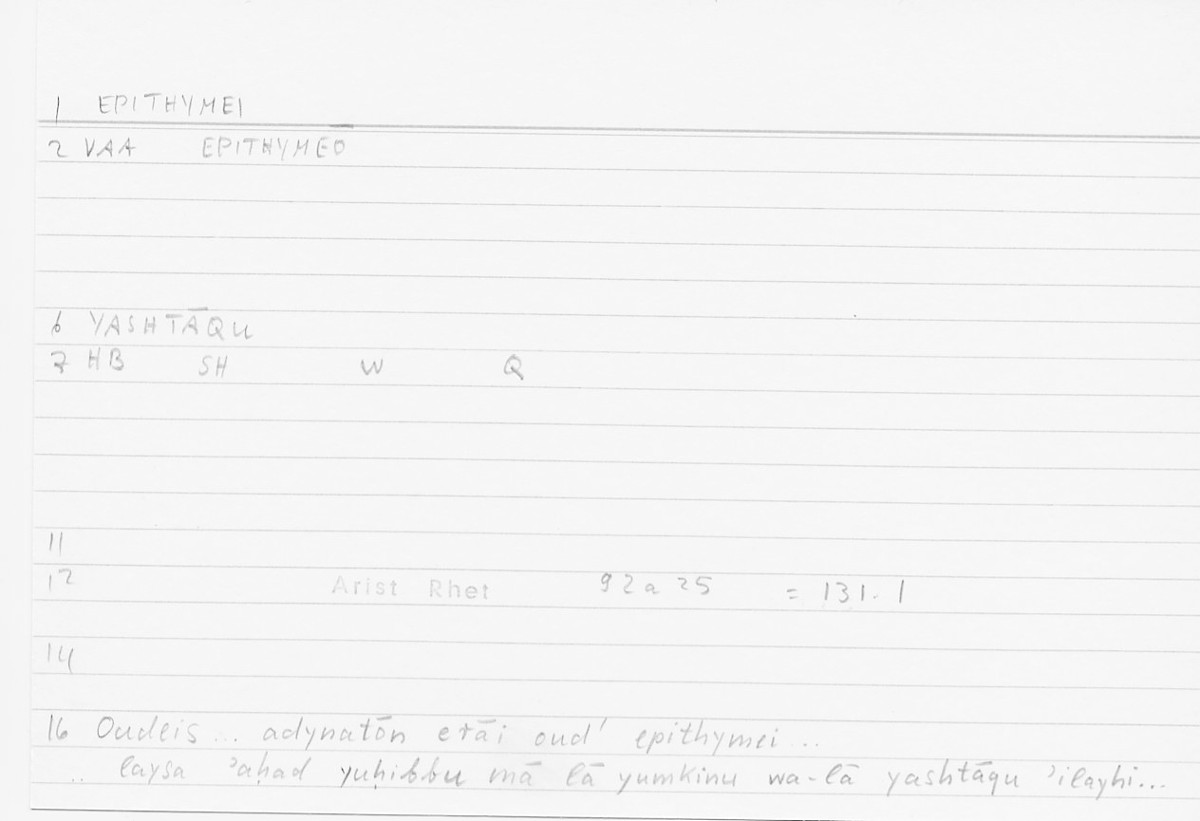 1 EPITHYMEI
2 VAA EPITHYMEŌ
6 YASHTĀQU
7 HB SH W Q
11
12 Arist Rhet 92a25 = 131.1
14
16 Oudeis... adynatōn erāi oud' epithymei...
.. laysa ʾaḥad yuḥibbu mā lā yumkinu wa-lā yashtāqu ʾilayhi...